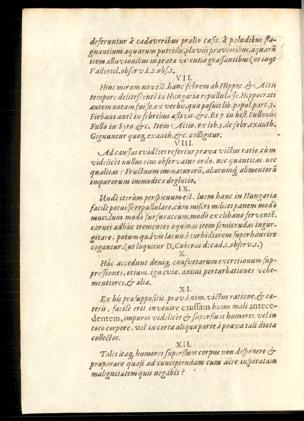 deferuntur à cadaveribus prælio cæsis. à paludibus stag-
nantium aquarum putridis, pluviis pravioribus, aquarū
item alluvionibus in prata virentia grassantibus (ut inqt
Valleriol. observ. 1. 2. obs. 1.
VII.
Hinc mirum non est hanc febrem ab Hippoc. & Aëtii
tempore delitescentē in Hungaria repullulasse. Hippocrati
autem notam fuisse ex verbis, quæ posuit lib. popul. part. 3.
Fiebant autē in febribus æstivis. &c. Et 7. in hist. Fullonis
Fullo in Syro, &c. Item Aëtio. ex lib. 5. de febr. exanth.
Gignuntur quoq, exanth. &c. colligitur.
VIII.
Ad causas evidētes refertur prava victus ratio, cum
videlicèt nullus ejus observatus ordo, nec quantitas. nec
qualitas: Fructuum immaturorū, aliorumq, alimentorū
impurorum immodica deglutio.
IX.
Unde iterùm perspicuum est. luem hanc in Hungaria
facile potuisse repullulare, cùm miseri milites panem modò
mucidum modò furfuraceum, modò ex clibano ferventē,
carnes adhuc trementes equinas item semicrudas ingur-
gitare, potum quoq, ex lacunis turbidiorem superhaurire
cogantur. (ut loquitur D. Cobrus decad. 2. observ. 2.)
X.
Hùc accedunt deniq, consuetarum excretionum sup-
pressiones. otium. ignavia. animi perturbationes vehe-
mentiores, & alia.
XI.
Ex his præsuppositis. pravâ nim. victus ratione, & cæ-
teris, facilè erit invenire caussam hujus mali antece-
dentem, impuros videlicèt & superfluos humores. vel in
toto corpore. vel in certa aliqua parte à prava tali diæta
collectos.
XII.
Tales itaq, humores superfluos corpus non disponere &
præparare quasi ad concipiendam cum aëre inspiratam
malignitatem quis negabit?